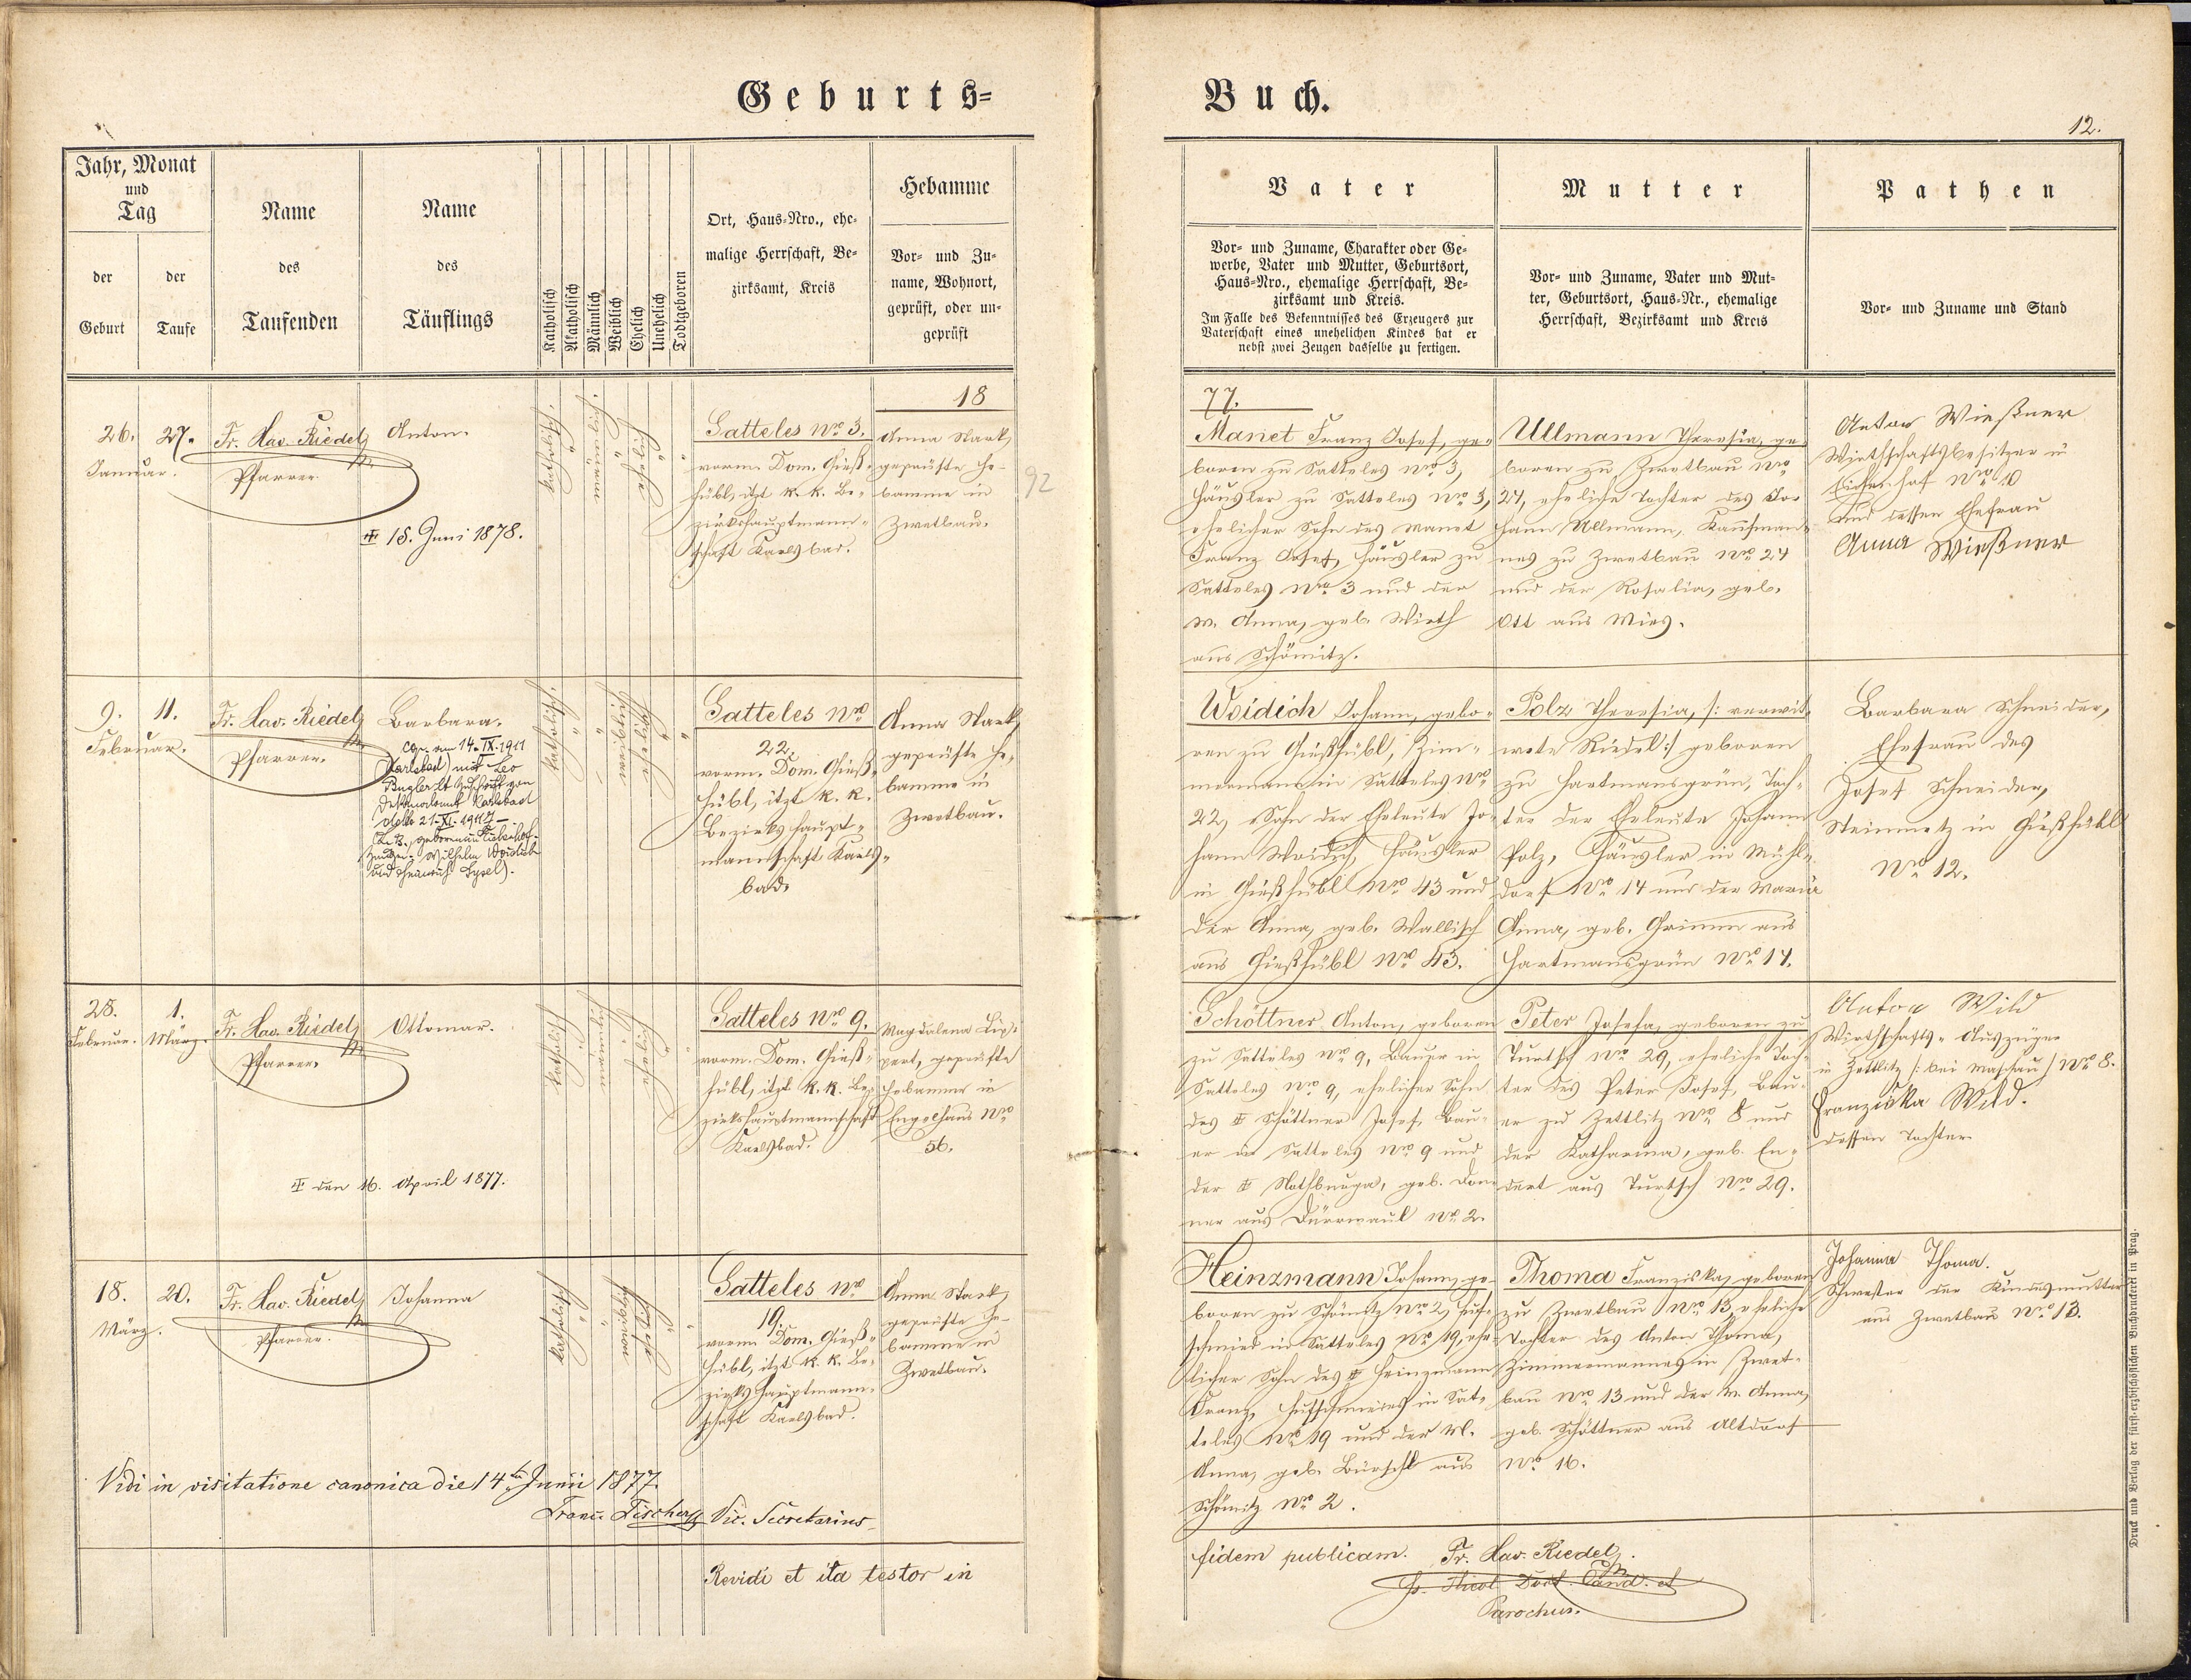 Geburts=
Buch.
12.
Jahr, Monat
und
Tag
der
Geburt
der
Taufe
Name
des
Taufenden
Name
des
Täuflings
Katholisch
Akatholisch
Männlich
Weiblich
Ehelich
Unehelich
Todtgeboren
Ort, Haus=Nro., ehe=
malige Herrschaft, Be=
zirksamt, Kreis
Hebamme
Vor= und Zu=
name, Wohnort,
geprüft, oder un=
geprüft
Vater
Vor= und Zuname, Charakter oder Ge=
werbe, Vater und Mutter, Geburtsort,
Haus=Nro., ehemalige Herrschaft, Be=
zirksamt und Kreis.
Im Falle des Bekenntnisses des Erzeugers zur
Vaterschaft eines unehelichen Kindes hat er
nebst zwei Zeugen dasselbe zu fertigen.
Mutter
Vor= und Zuname, Vater und Mut=
ter, Geburtsort, Haus=Nr., ehemalige
Herrschaft, Bezirksamt und Kreis
Pathen
Vor= und Zuname und Stand
18
77.
26.
Januar.
27.
Fr. Xav. Riedel
Pfarrer.
Anton.
† 15. Juni 1878.
katholisch.
Satteles No 3.
vorm. Dom. Gieß=
hübl, itzt k. k. Be=
zirkshauptmann=
schaft Karlsbad.
Anna Stark,
geprüfte He=
bamme in
Zwetbau.
92
Maniet Franz Josef, ge=
boren zu Satteles No 3,
Häusler zu Satteles No 3,
ehelicher Sohn des Maniet
Franz Josef, Häusler zu
Satteles No 3 und der
M. Anna, geb. Wirth
aus Schömitz.
Ullmann Theresia, ge=
boren zu Zwetbau No
24, eheliche Tochter des Jo=
hann Ullmann, Kaufman=
nes zu Zwetbau No 24
und der Rosalia, geb.
Ott aus Wies.
Anton Wießner
Wirthschaftsbesitzer in
No 10
und dessen Ehefrau
Anna Wießner
9.
Februar.
11.
Fr. Xav. Riedel
Pfarrer.
Barbara.
Cop. am 14. IX. 1911
(Karlsbad) mit Leo
Karlsbad
Zeugen: Wilhelm Woidich
und Heinrich
katholisch.
Satteles No
22.
vorm. Dom. Gieß=
hübl, itzt k. k.
Bezirkshaupt=
mannschaft Karls=
bad.
Anna Stark,
geprüfte He=
bamme in
Zwetbau.
Woidich Johann, gebo=
ren zu Gießhübl, Zim=
mermann in Satteles No
22, Sohn der Eheleute Jo=
hann Woidich, Häusler
in Gießhübl No 43 und
der Anna, geb. Wallisch
aus Gießhübl No 43.
Polz Theresia, /: verwit=
wete Riedel :/ geboren
zu Hartmansgrün, Toch=
ter der Eheleute Johann
Polz, Häusler in Mühl=
dorf No 14 und der Maria
Anna, geb. Grimm aus
Hartmansgrün No 14.
Barbara Schneider,
Ehefrau des
Josef Schneider,
Steinmetz in Gießhübl
No 12.
28.
Februar.
1.
März.
Fr. Xav. Riedel
Pfarrer.
Ottomar.
† den 16. April 1877.
katholisch
Satteles No 9.
vorm. Dom. Gieß=
hübl, itzt k. k. Be=
zirkshauptmannschaft
Karlsbad.
Magdalena Lip=
pert, geprüfte
Hebamme in
Engelhaus No
56.
Schöttner Anton, geboren
zu Satteles No 9, Bauer in
Satteles No 9, ehelicher Sohn
des † Schöttner Josef, Bau=
er in Satteles No 9 und
der † Nothburga, geb. Don=
ner aus Dürrmaul No 2.
Peter Josefa, geboren zu
Turtsch No 29, eheliche Toch=
ter des Peter Josef, Bau=
er zu Zettlitz No 8 und
der Katharina, geb. En=
dert aus Turtsch No 29.
Anton Wild
Wirthschafts=Auszügler
in Zettlitz /: bei Maschau / No 8.
Franziska Wild.
dessen Tochter
18.
März.
20.
Fr. Xav. Riedel
Pfarrer.
Johanna
katholisch
Satteles No
19.
vorm. Dom. Gieß=
hübl, itzt k. k. Be=
zirkshauptmann=
schaft Karlsbad.
Anna Stark,
geprüfte He=
bamme in
Zwetbau.
Heinzmann Johann, ge=
boren zu Schömitz No 2, Huf=
schmied in Satteles No 19, ehe=
licher Sohn des † Heinzmann
Franz, Hufschmiedes in Sat=
teles No 19 und der M.
Anna, geb. Bürschl aus
Schömitz No 2.
Thoma Franziska, geboren
zu Zwetbau No 13, eheliche
Tochter des Anton Thoma,
Zimmermannes in Zwet=
bau No 13 und der M. Anna,
geb. Schöttner aus Altdorf
No 16.
Johanna Thoma.
Schwester der Kindesmutter
aus Zwetbau No 13.
Vidi in visitatione canonica die 14ta Junii 1877.
Franc. Fischer Vic. Secretarius
Revidi et ita testor in
fidem publicam. Fr. Xav. Riedel
Parochus.
Druck und Verlag der fürst=erzbischöflichen Buchdruckerei in Prag.